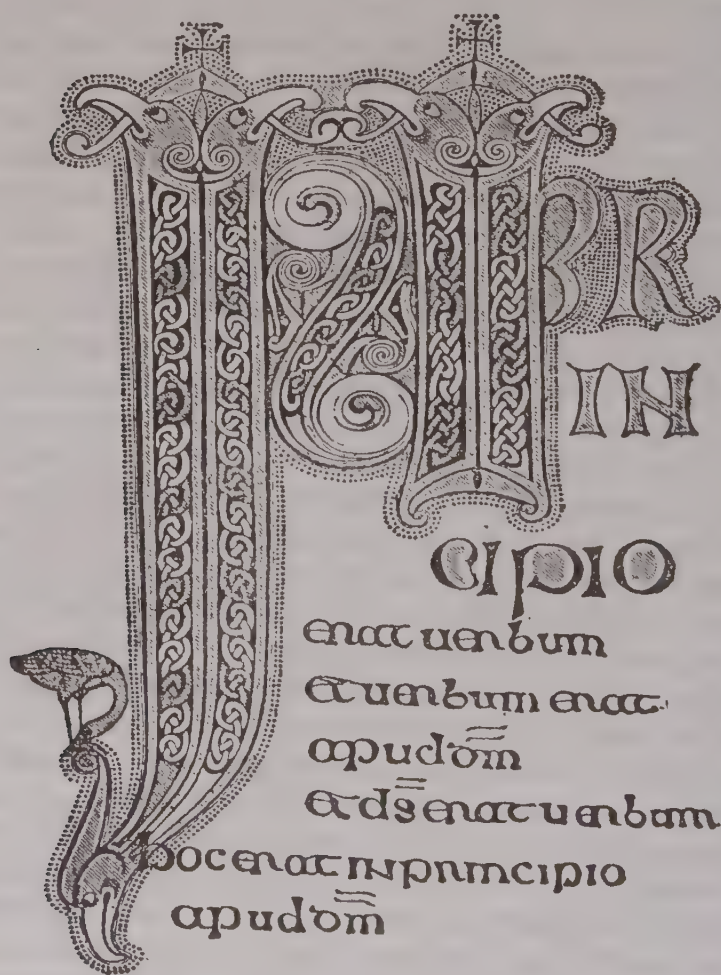 INPR
IN
CIPIO
erat uerbum
et uerbum erat
apud d̄m̄
et d̄s̄ erat uerbum
hoc erat in principio
apud d̄m̄